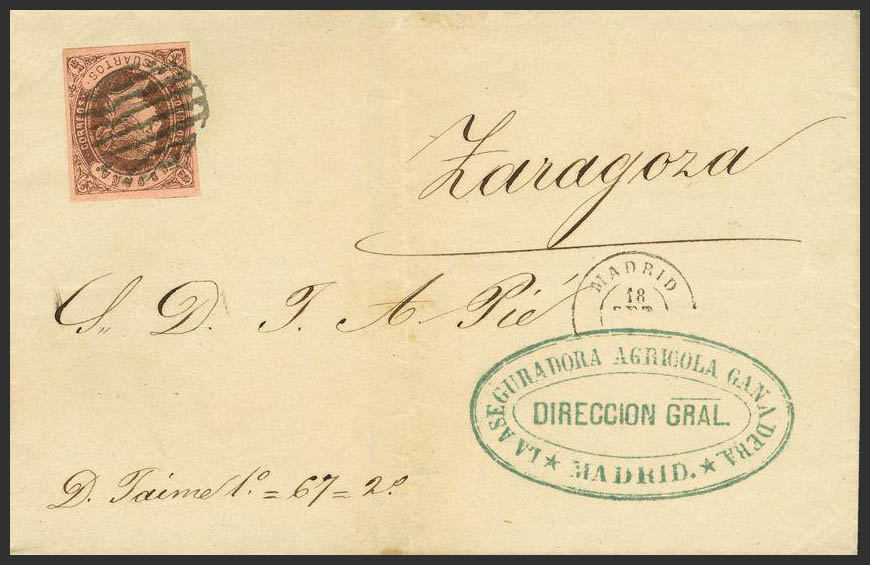 CORREOS
CUARTOS.
Zaragoza
MADRID
18
S.. D. J. A Pié
LA ASEGURADORA AGRICOLA GANADERA.
DIRECCION GRAL.
★ MADRID. ★
D. Jaime 1º = 67 = 2º